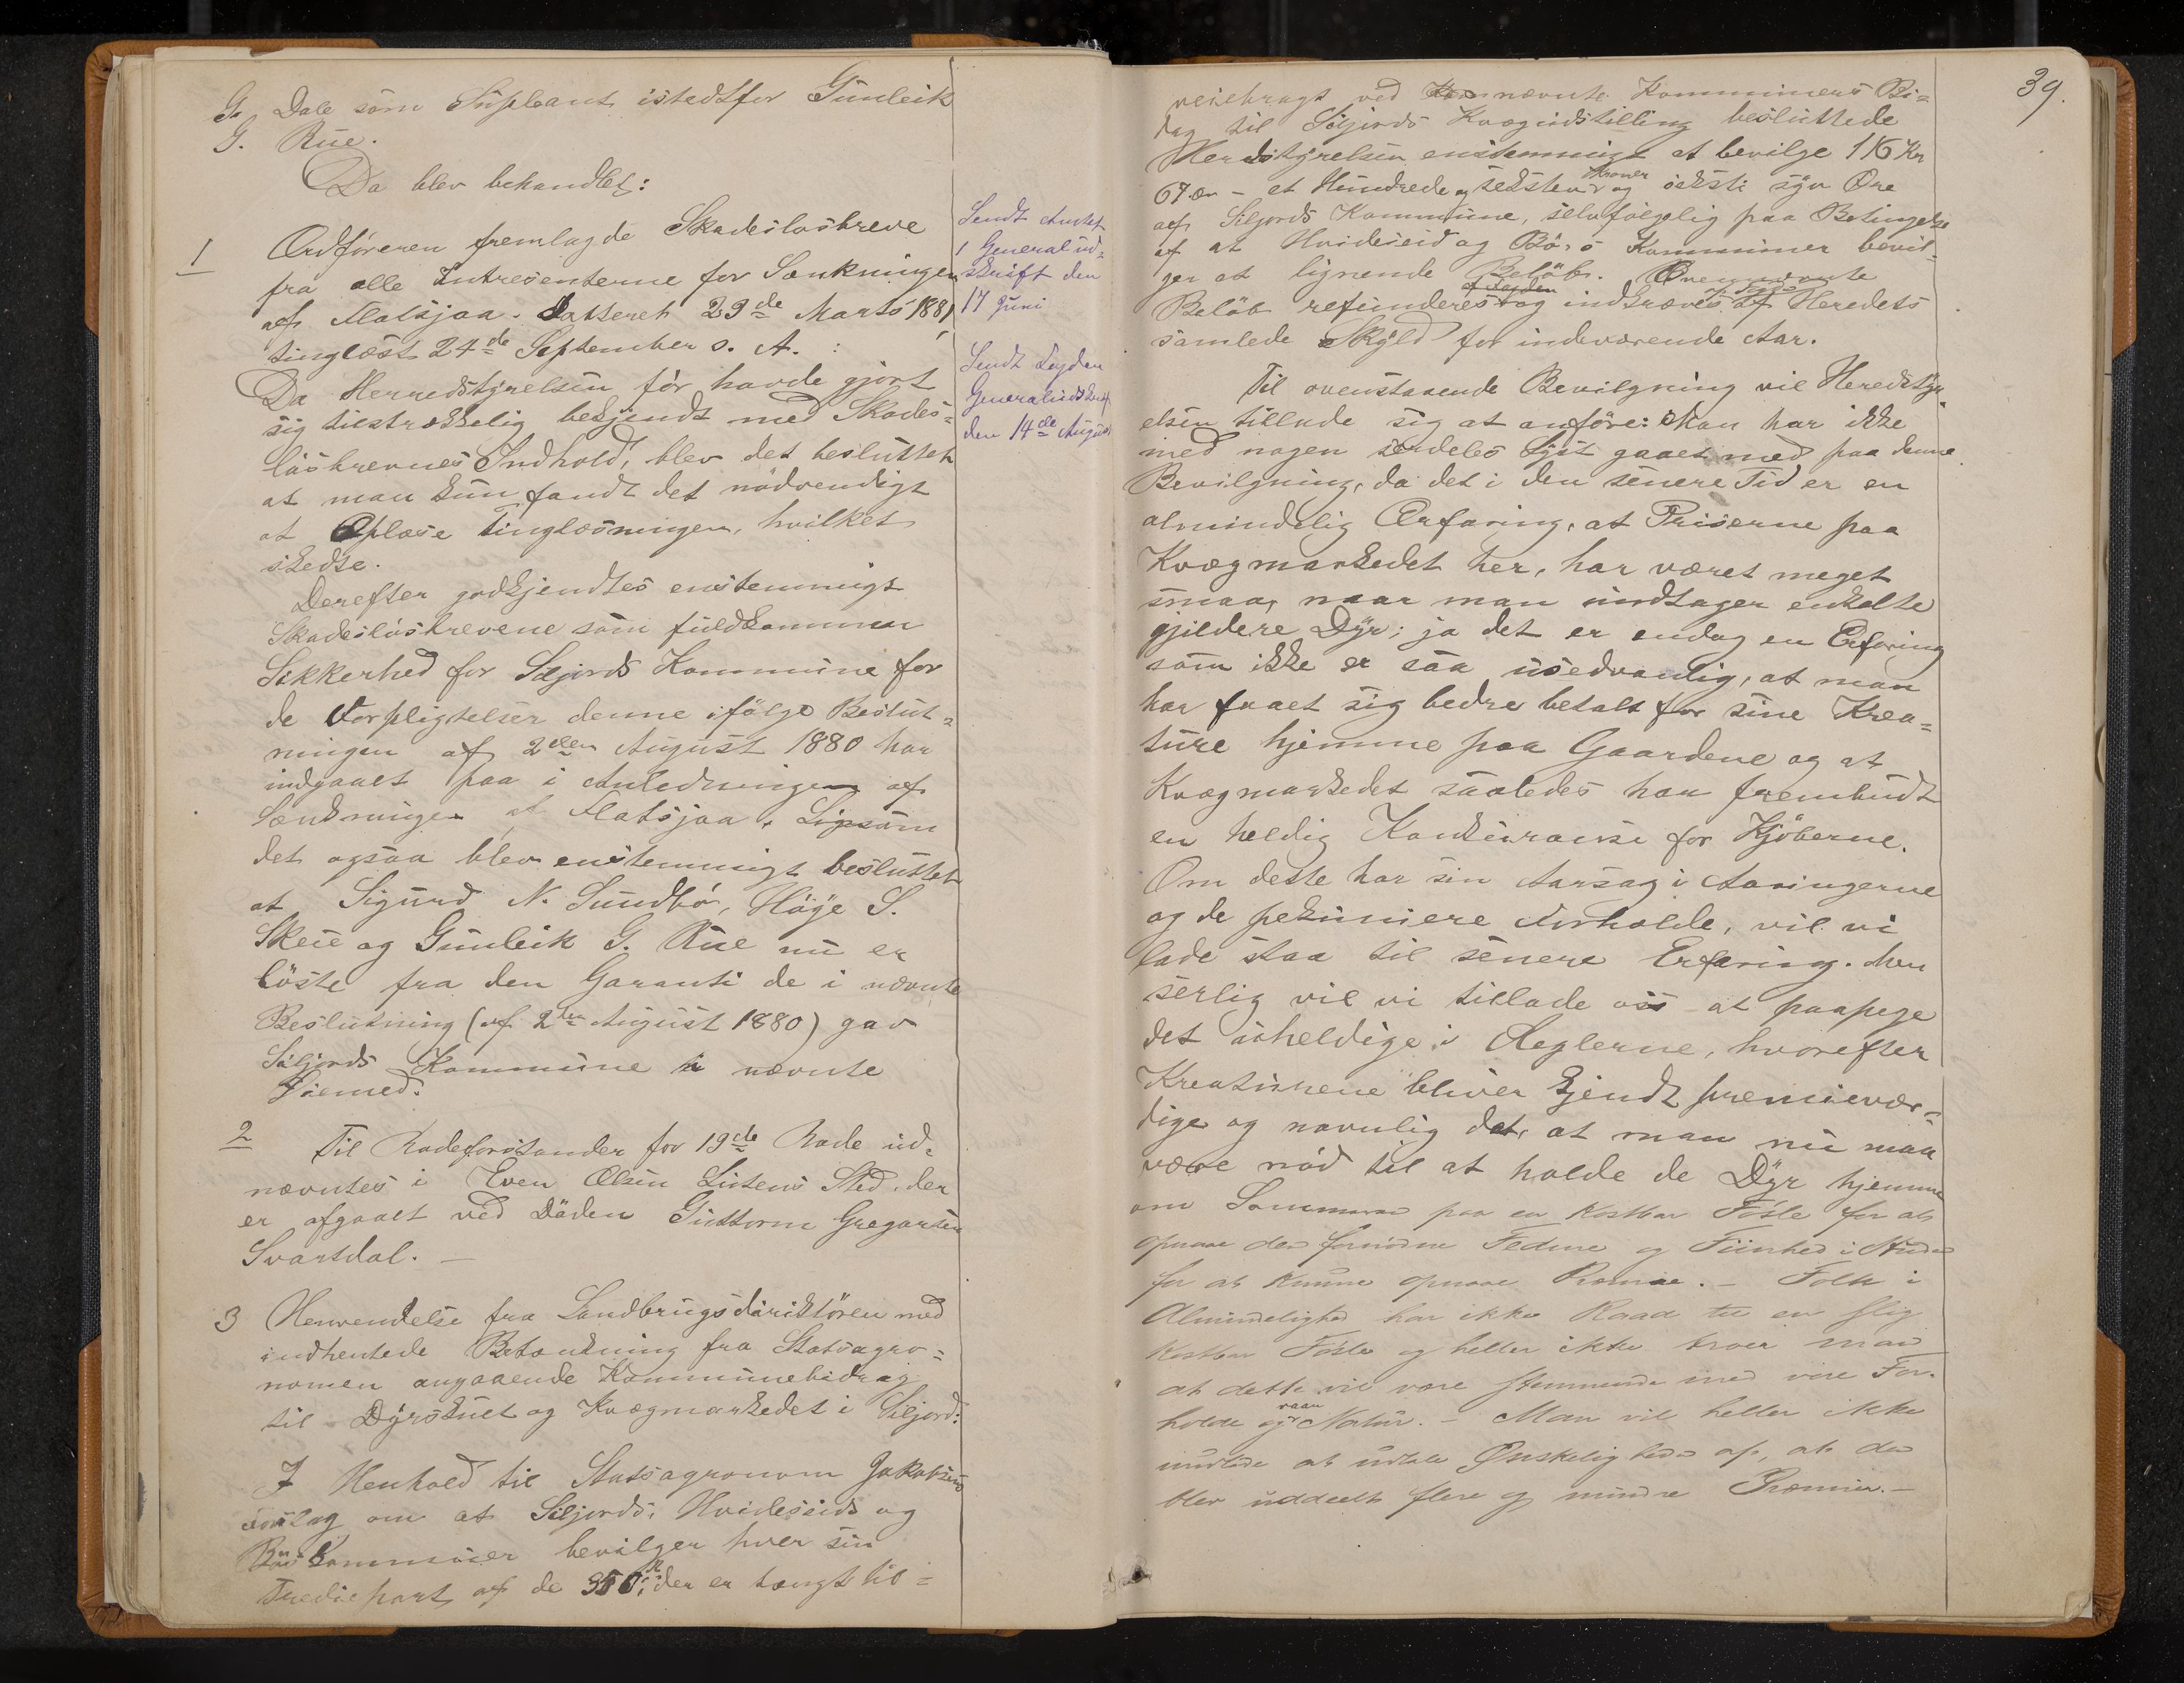 G. Dale som Supleant istedtfor Gunleik
G. Rue.
Da blev behandlet:
1
Ordføreren fremlagde Skadesløsbreve
fra alle Intresenterne for Sænkningen
af Flatsjaa. Datteret 29de Marts 1881
tinglæst 24de September s. A. :
Da Herredstyrelsen før havde gjort
sig tilstrækkelig bekjendt med Skades=
løsbrevnes Indhold, blev det besluttet
at man kun fandt det nødvendigt
at Oplæse Tinglæsningen, hvilket
skedte.
Derefter godkjendtes enstemmigt
Skadesløsbrevene som fuldkommen
Sikkerhed for Siljords Kommune for
de Forpligtelser denne ifølge Beslut=
ningen af 2den August 1880 har
indgaaet paa i Anledningen af
Sænkningen af Flatsjaa. Ligesom
det ogsaa blev enstemmigt besluttet
at Sigurd N. Sundbö, Høye S.
Skeie og Gunleik G. Rue nu er
löste fra den Garanti de i nævnte
Beslutning (af 2den August 1880) gav
Siljords Kommune i nævnte
Øiemed.
2
Til Rodeforstander for 19de Rode ud=
nævntes i Even Olsen Listens Sted, der
er afgaaet ved Døden Guttorm Gregarsen
Svartdal. —
3 Henvendelse fra Landbrugsdiriktören med
indhentede Betænkning fra Statsagro=
nomen angaaende Kommunebidrag
til Dyrskuet og Kvægmarkedet i Siljord:
I Henhold til Statsagronom Jakobsens
Forslag om at Siljords, Hvideseids og
Bøs Kommuner bevilger hver sin
Trediepart af de 350 Kr der er tængt til=
Sendt Amtet
1 Generalud=
skrift den
17 Juni
Sendt Fogden
Generaludskrift
den 14de August
39.
veiebragt ved nævnte Kommuners Bi=
drag til Siljords Kvægudstilling besluttede
Herredstyrelsen enstemmigt at bevilge 116 Kr
67 ær – et Hundrede og seksten Kroner og seksti syv Øre
af Siljords Kommune, selvfølgelig paa Betingelse
af at Hvideseid og Bøs Kommuner bevil=
ger et lignende Beløb. Ovennævnte
Beløb refunderes af Fogden og indkræves af Heredets
samlede Skyld for indeværende Aar.
Til ovenstaaende Bevilgning vil Heredstyr=
elsen tillade sig at anføre: Man har ikke
med nogen serdeles Lyst gaaet med paa denne
Bevilgning, da det i den senere Tid er en
almindelig Erfaring, at Priserne paa
Kvægmarkedet her, har været meget
smaa, naar man undtager enkelte
gjildere Dyr; ja det er endog en Erfaring
som ikke er saa usedvanlig, at man
har faaet sig bedre betalt for sine Krea=
ture hjemme paa Gaardene og at
Kvægmarkedet saaledes har frembudt
en heldig Konkurranse for Kjøberne.
Om dette har sin Aarsag i Aaringerne
og de pekuniere Forholde, vil vi
lade staa til senere Erfaring. Men
serlig vil vi tillade oss at paapege
det uheldige i Reglerne, hvorefter
Kreaturene bliver kjendt premievær=
dige og navnlig det, at man nu maa
være nød til at holde de Dyr hjemme
om Sommeren paa en kostbar Føste for at
opnaae den fornødne Fedme og Fiinhed i Huden
for at kunne opnaae Præmie. – Folk i
Almindelighed har ikke Raad til en slig
kostbar Føste og heller ikke troer man
at dette vil være stemmende med vore For=
holde og vaar Natur. – Man vil heller ikke
undlade at udtale Ønskeligheden af, at der
blev uddeelt flere og mindre Præmier. –